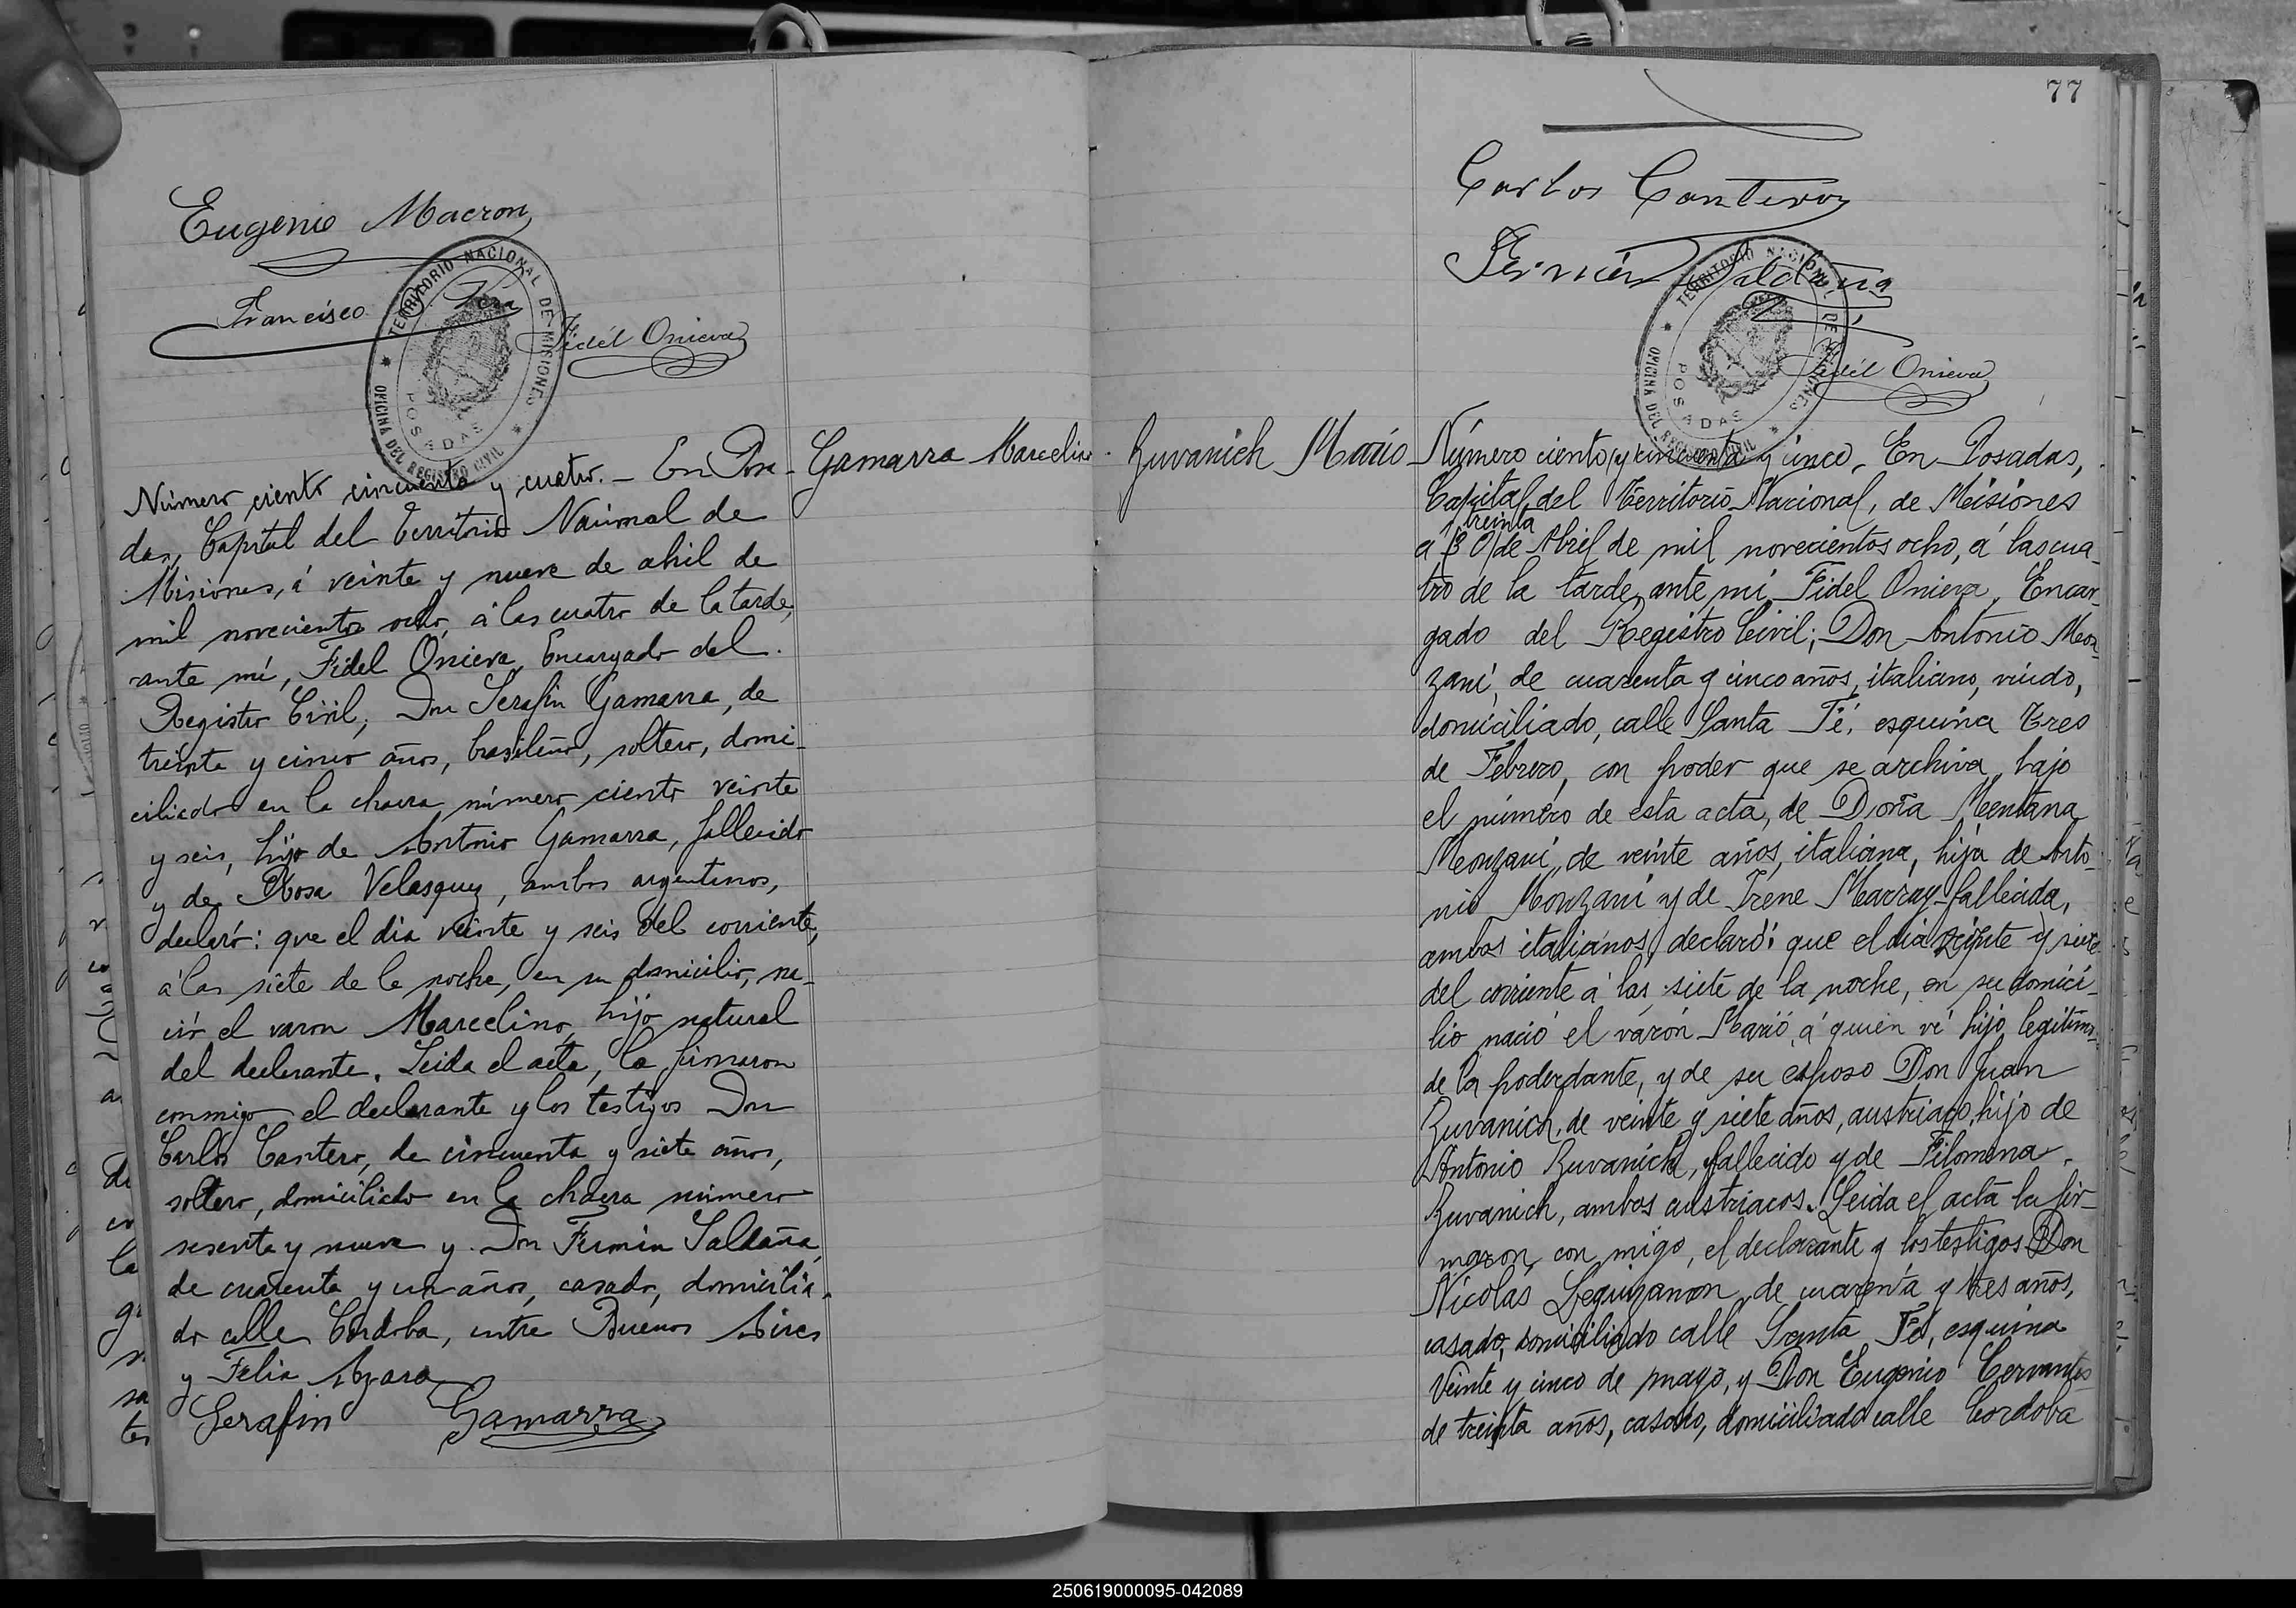 Eugenio Macron
Francisco Vera
Fidél Onieva
TERRITORIO NACIONAL DE MISIONES
OFICINA DEL REGISTRO CIVIL
POSADAS
Número ciento cincuenta y cuatro. - En Posa-
das, Capital del Territorio Nacional de
Misiones, á veinte y nueve de abril de
mil novecientos ocho, á las cuatro de la tarde,
ante mí, Fidel Onieva, Encargado del
Registro Civil; Don Serafin Gamarra, de
treinta y cinco años, brasileño, soltero, domi-
ciliado en la chacra número ciento veinte
y seis, hijo de Antonio Gamarra, fallecido
y de Rosa Velasquez, ambos argentinos,
declaró: que el dia veinte y seis del corriente,
á las siete de la noche, en su domicilio, na-
ció el varon Marcelino, hijo natural
del declarante. Leida el acta, la firmaron
conmigo el declarante y los testigos Don
Carlos Cantero, de cincuenta y siete años,
soltero, domiciliado en la chacra número
sesenta y nueve y Don Fermin Saldaña,
de cuarenta y un años, casado, domicilia-
do calle Córdoba, entre Buenos Aires
y Felix Azara
Serafin Gamarra
Gamarra Marcelino
77
Carlos Canteros
Fermin Saldaña
Fidél Onieva
TERRITORIO NACIONAL DE MISIONES
OFICINA DEL REGISTRO CIVIL
POSADAS
Zuvanich Mario
Número ciento y cincuenta y cinco, En Posadas,
Capital del Territorio Nacional, de Misiones
treinta
a 30 de Abril de mil novecientos ocho, á las cua-
tro de la tarde, ante mí Fidel Onieva, Encar-
gado del Registro Civil; Don Antonio Mon-
zani, de cuarenta y cinco años, italiano, viudo,
domiciliado, calle Santa Fé, esquina Tres
de Febrero, con poder que se archiva, bajo
el número de esta acta, de Doña Mentana
Monzani, de veinte años, italiana, hija de Anto-
nio Monzani y de Irene Marray fallecida,
ambos italianos, declaró: que el dia veinte y siete
del corriente á las siete de la noche, en su domici-
lio nació el varón Mario, á quien vi hijo legitimo
de la poderdante, y de su esposo Don Juan
Zuvanich, de veinte y siete años, austriaco, hijo de
Antonio Zuvanich, fallecido y de Filomena
Zuvanich, ambos austriacos. Leida el acta la fir-
maron, con migo, el declarante y los testigos Don
Nicolás Leguizamon, de cuarenta y tres años,
casado, domiciliado calle Santa Fé, esquina
Veinte y cinco de mayo, y Don Eugenio Cervantes
de treinta años, casado, domiciliado calle Cordoba
250619000095-042089